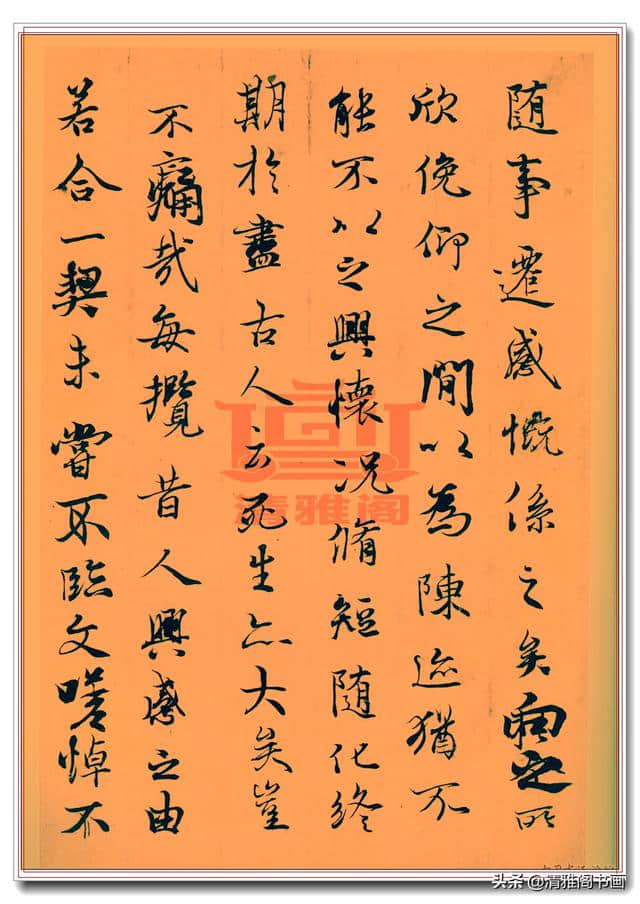 随事遷感慨係之矣向之所
欣俛仰之閒以為陳迹猶不
能不以之興懷况脩短随化終
期於盡古人云死生亦大矣豈
不痛哉每攬昔人興感之由
若合一契未嘗不臨文嗟悼不
清雅阁
头条 @清雅阁书画